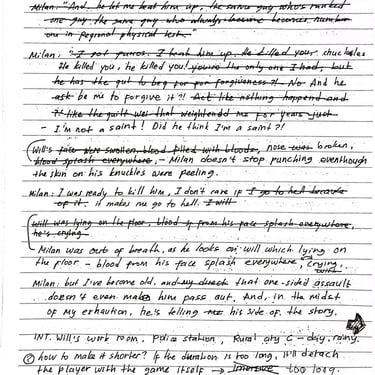 Milan: "And, he let me beat him up, the same guy who's ranked
one guy, the same guy who always become becomes number
one in regional physical test."
Milan: "I got furious. I beat him up. He killed your
He killed you, he killed you! you're the only one I had, but
he has the gut to beg for forgiveness?! No And he
ask me to forgive it?! Act like nothing happend and
like the guilt was that weightendd me for years just
I'm not a saint! Did he think I'm a saint?!
Will's face was swollen, blood filled with bloods, nose was broken,
blood splash everywhere, - Milan doesn't stop punching eventhough
the skin on his knuckles were peeling.
Milan: I was ready to kill him, I don't care if I go to hell because
of it. it makes me go to hell. I will
Will was lying on the floor, blood from his face splash everywhere,
he's crying
Milan was out of breath, as he looks on Will which lying on
the floor - blood from his face splash everywhere, crying
Milan: but I've become old, and my that one-sided assault
doesn't even make him pass out. And, in the midst
of my exhaution, he's telling me his side of the story.
INT. Will's work room, Police station, Rural city C - day, rainy.
how to make it shorter? If the duration is too long, it'll detach
the player with the game itself → Immersive too long.